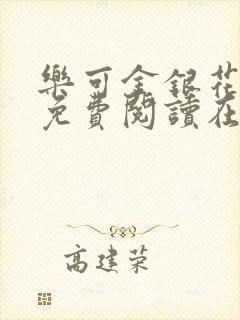 樂可金銀花
免費閱讀在
高建荣